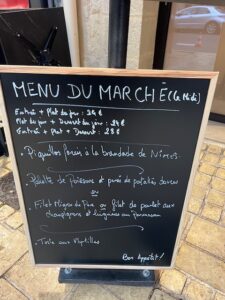 MENU DU MARCHÉ (Le Midi)
Entrée + Plat du jour : 24 €
Plat du jour + Dessert du jour : 24 €
Entrée + Plat + Dessert : 28 €
. Piquillos farcis à la brandade de Nîmes.
. Palette de Poissons et purée de patates douces
ou
. Filet Mignon de Porc ou filet de poulet aux
champignons et linguines au Parmesan
. Tarte aux Myrtilles
Bon Appétit !